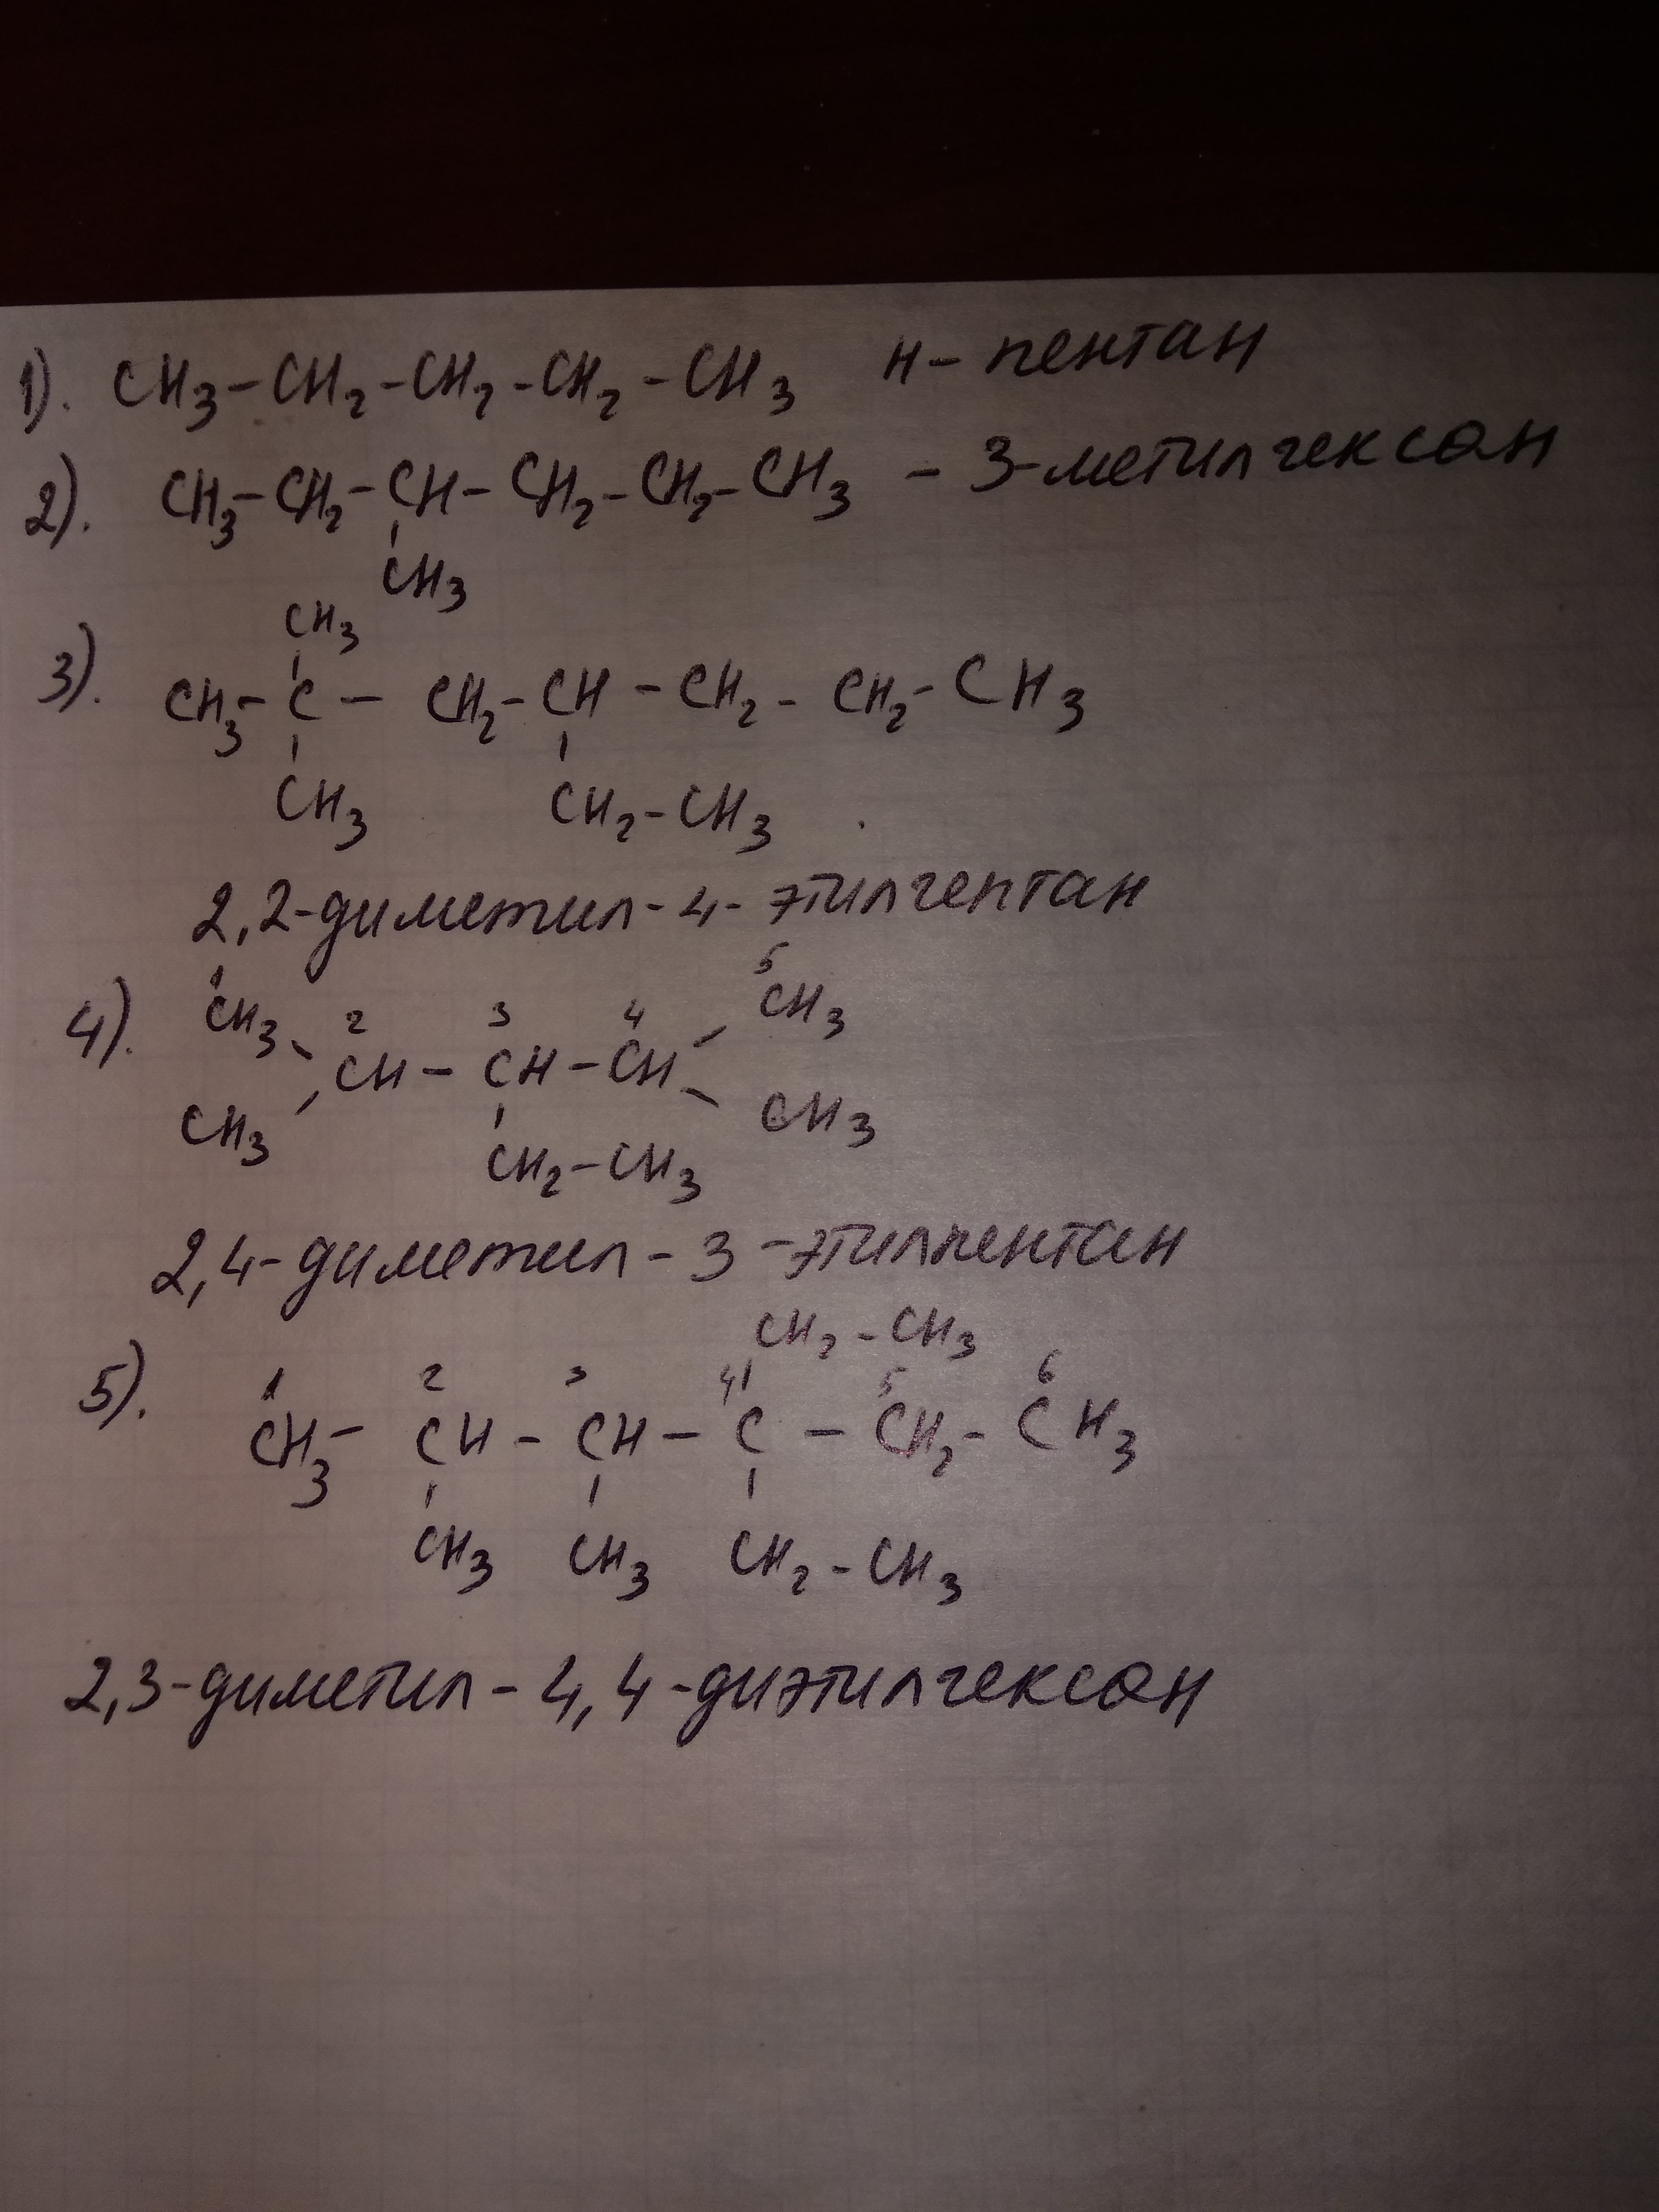 1). CH3-CH2-CH2-CH2-CH3 н-пентан
2). CH3-CH2-CH-CH2-CH2-CH3 - 3-метилгексан
CH3
CH3
3). CH3-C-CH2-CH-CH2-CH2-CH3
CH3 CH2-CH3
2,2-диметил-4-этилгептан
1 5
4). CH3 2 3 4 CH3
CH-CH-CH
CH3 CH3
CH2-CH3
2,4-диметил-3-этилпентан
CH2-CH3
5). 1 2 3 4 5 6
CH3-CH-CH-C-CH2-CH3
CH3 CH3 CH2-CH3
2,3-диметил-4,4-диэтилгексан